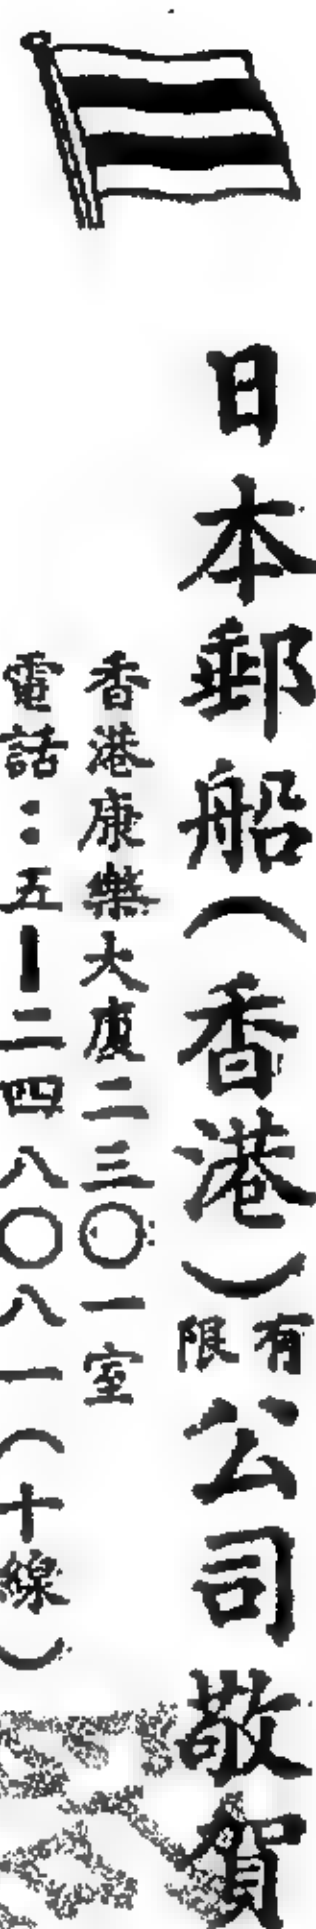 日本郵船（香港）有限公司敬賀
香港康樂大廈二三〇一室
電話：五－二四八〇八一（十線）